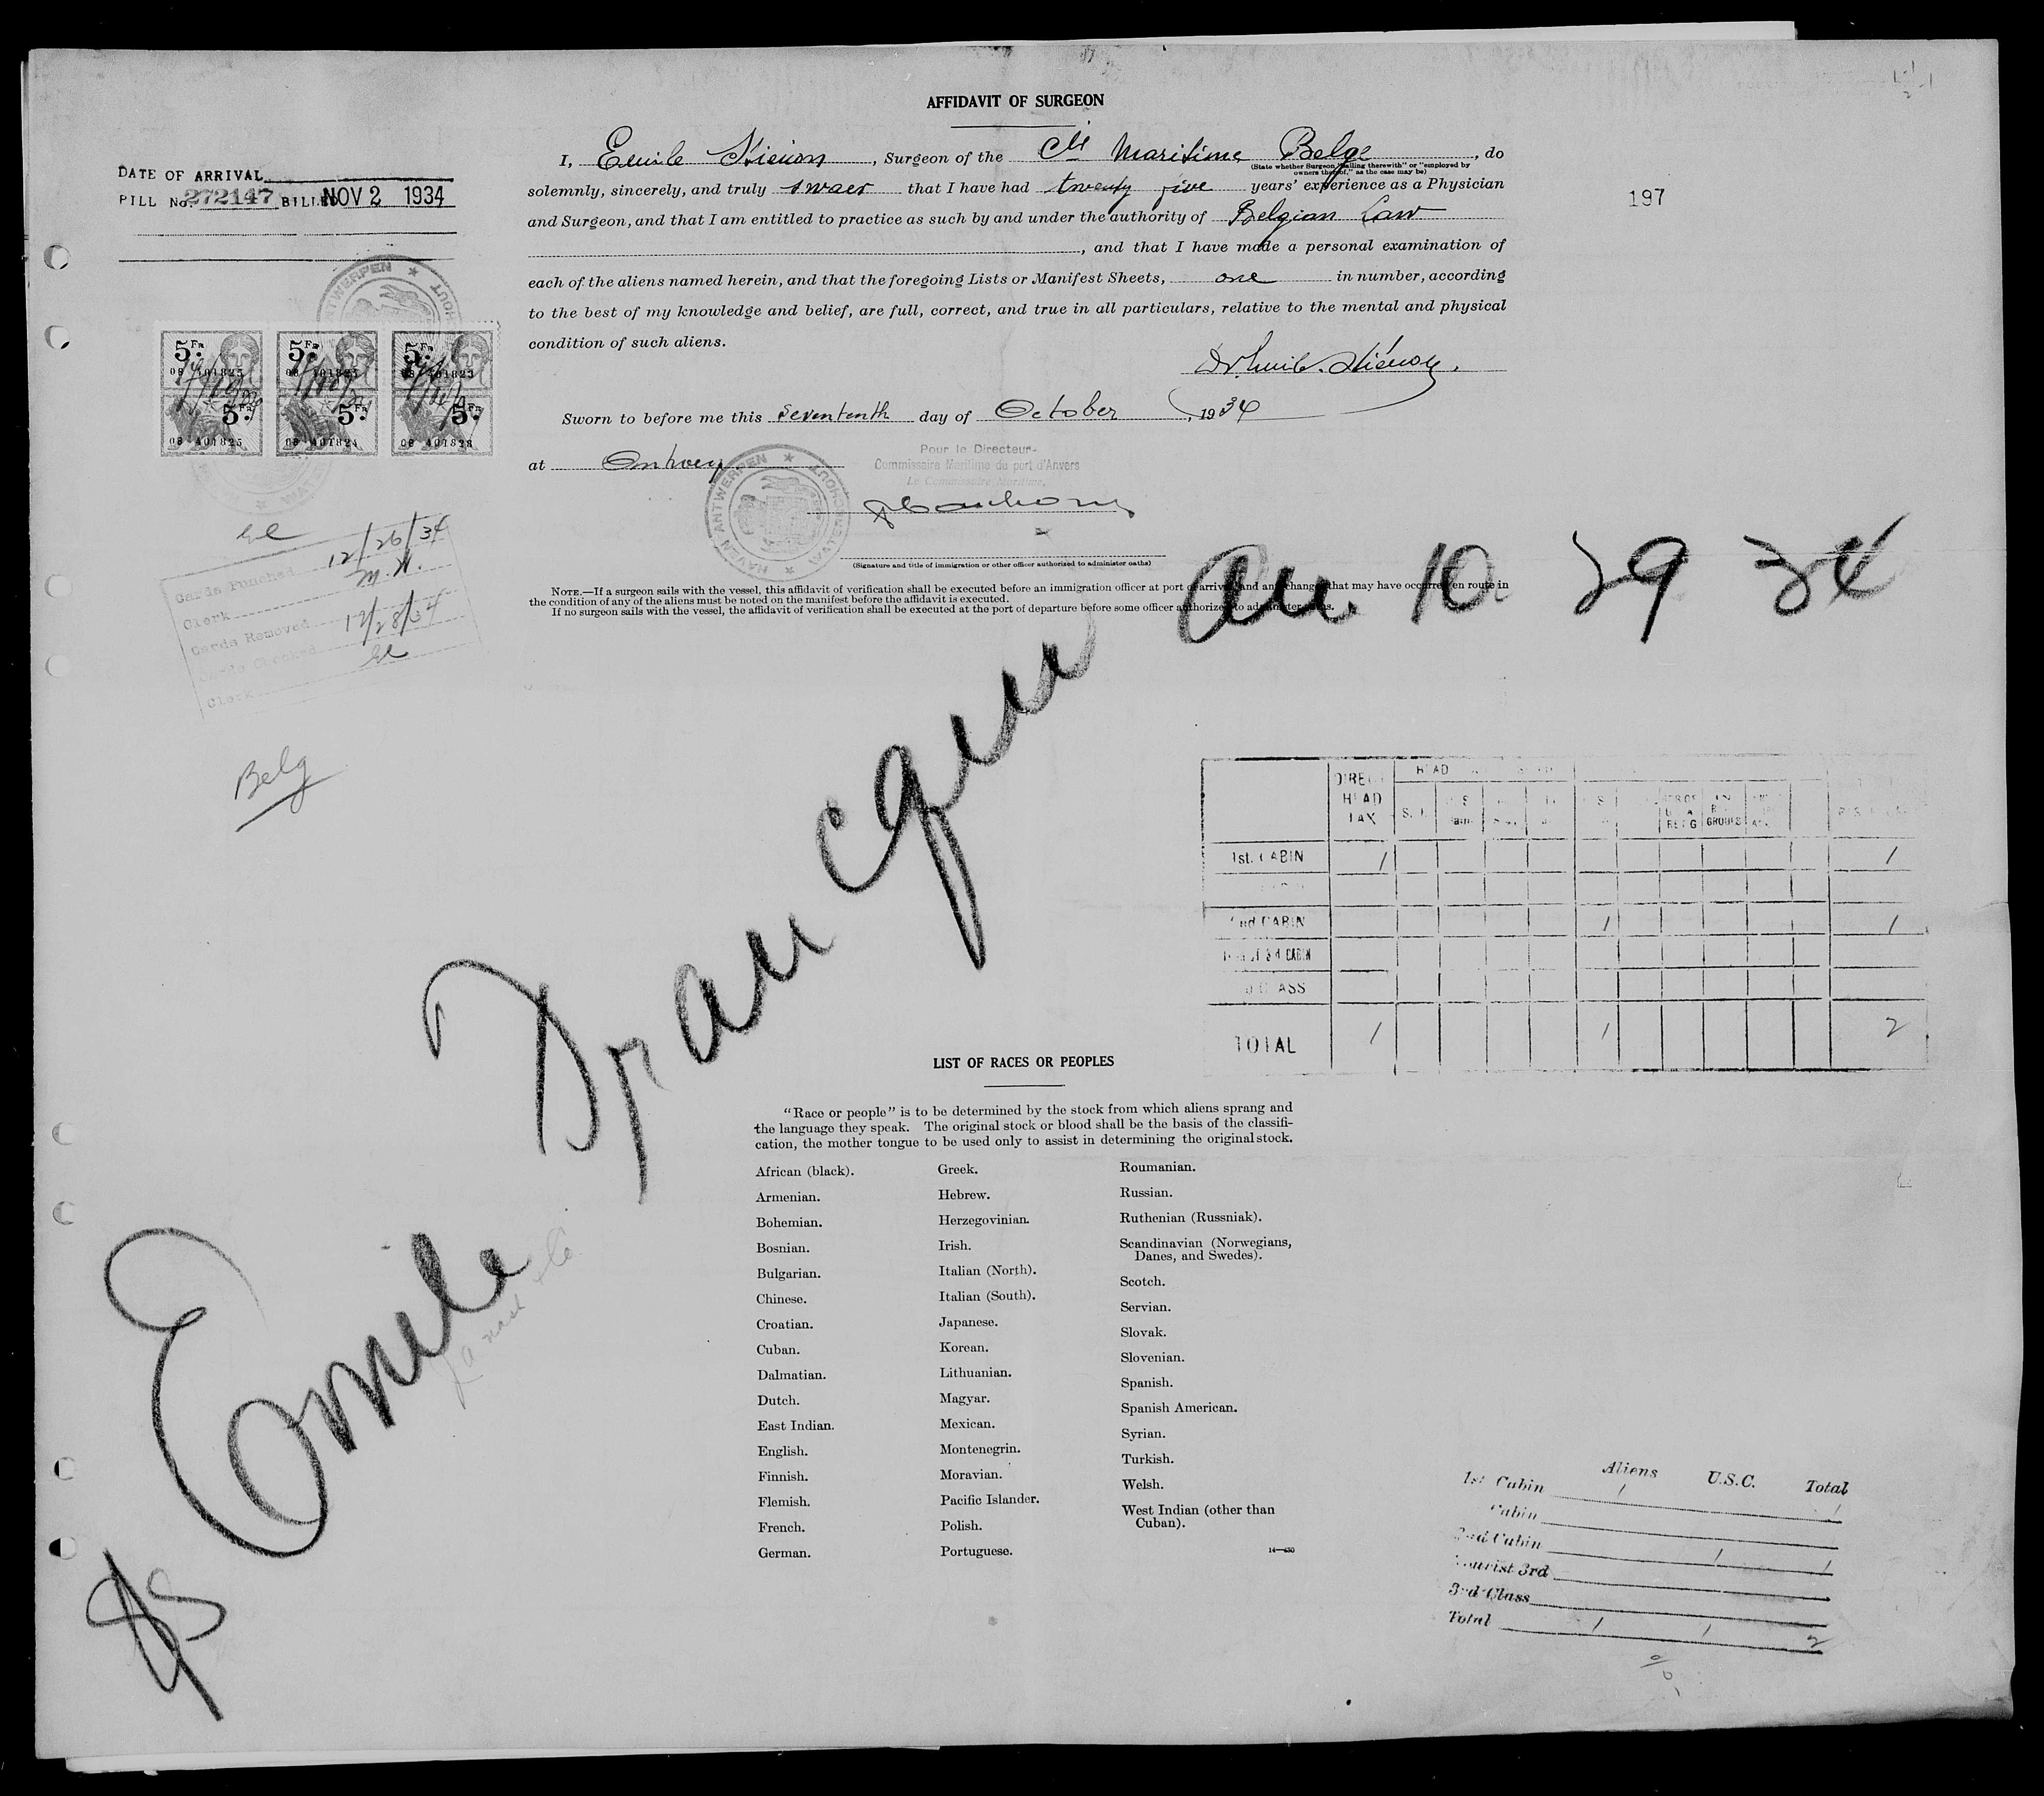 AFFIDAVIT OF SURGEON
I, Emile , Surgeon of the Cie Maritime Belge, do
(State whether Surgeon "sailing therewith" or "employed by
owners thereof," as the case may be)
solemnly, sincerely, and truly swaer that I have had twenty five years' experience as a Physician
and Surgeon, and that I am entitled to practice as such by and under the authority of Belgian Law
, and that I have made a personal examination of
each of the aliens named herein, and that the foregoing Lists or Manifest Sheets, one in number, according
to the best of my knowledge and belief, are full, correct, and true in all particulars, relative to the mental and physical
condition of such aliens.
Dr. Emile
Sworn to before me this sevententh day of October, 1934
at Antwerp
Pour le Directeur-
Commissaire Maritime du port d'Anvers
Le Commissaire Maritime,
HAVEN ANTWERPEN ★ WATERSCHOUT ★
(Signature and title of immigration or other officer authorized to administer oaths)
NOTE.—If a surgeon sails with the vessel, this affidavit of verification shall be executed before an immigration officer at port of arrival and any change that may have occurred en route in
the condition of any of the aliens must be noted on the manifest before the affidavit is executed.
If no surgeon sails with the vessel, the affidavit of verification shall be executed at the port of departure before some officer authorized to administer oaths.
DATE OF ARRIVAL
PILL No. 272147 BILLED NOV 2 1934
197
5 Fr 5 Fr 5 Fr
5 Fr 5 Fr 5 Fr
Cards Punched 12/26/34
Clerk M.H.
Cards Removed 12/28/34
Cards Checked
Clerk
Belg
SS Emile Francqui arr. 10 29 34
DIRECT HEAD TAX
HEAD
GROUPS
1st. CABIN 1 1
2nd CABIN 1 1
TOURIST 3rd CABIN
3rd CLASS
TOTAL 1 1 2
LIST OF RACES OR PEOPLES
"Race or people" is to be determined by the stock from which aliens sprang and
the language they speak. The original stock or blood shall be the basis of the classifi-
cation, the mother tongue to be used only to assist in determining the original stock.
African (black).
Armenian.
Bohemian.
Bosnian.
Bulgarian.
Chinese.
Croatian.
Cuban.
Dalmatian.
Dutch.
East Indian.
English.
Finnish.
Flemish.
French.
German.
Greek.
Hebrew.
Herzegovinian.
Irish.
Italian (North).
Italian (South).
Japanese.
Korean.
Lithuanian.
Magyar.
Mexican.
Montenegrin.
Moravian.
Pacific Islander.
Polish.
Portuguese.
Roumanian.
Russian.
Ruthenian (Russniak).
Scandinavian (Norwegians,
Danes, and Swedes).
Scotch.
Servian.
Slovak.
Slovenian.
Spanish.
Spanish American.
Syrian.
Turkish.
Welsh.
West Indian (other than
Cuban).
Aliens U.S.C. Total
1st Cabin 1 1
Cabin
2nd Cabin 1 1
Tourist 3rd
3rd Class
Total 1 1 2